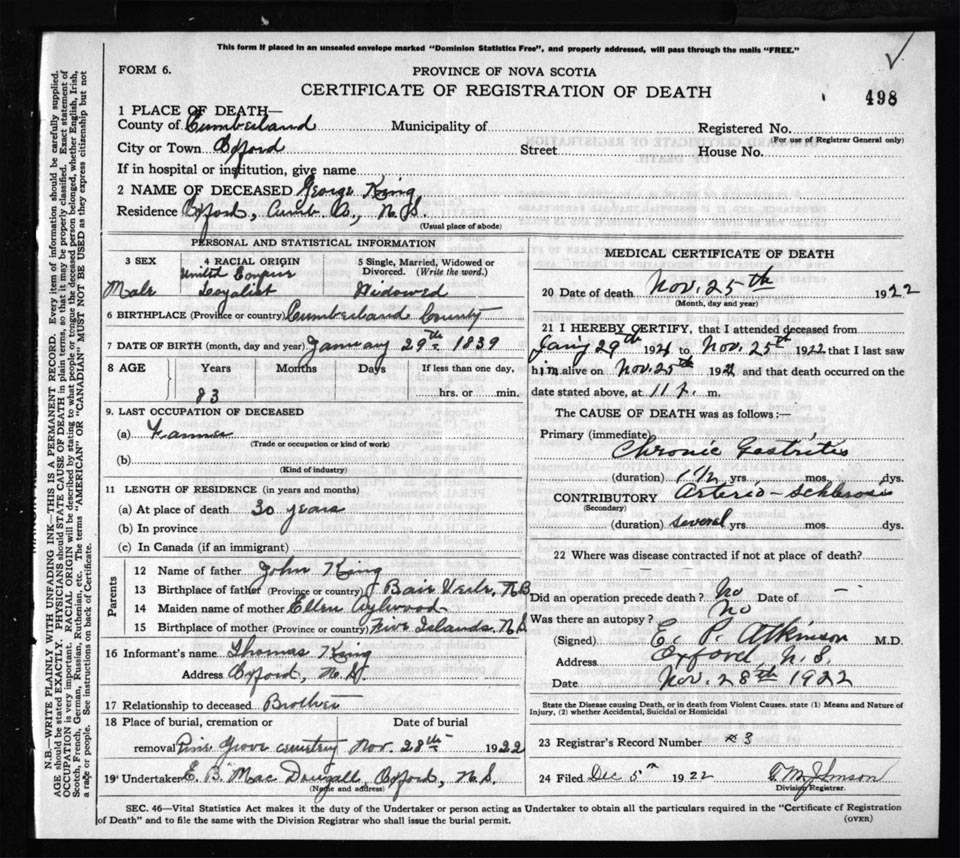 This form if placed in an unsealed envelope marked "Dominion Statistics Free", and properly addressed, will pass through the mails "FREE."
FORM 6.
PROVINCE OF NOVA SCOTIA
CERTIFICATE OF REGISTRATION OF DEATH
498
1 PLACE OF DEATH—
County of Cumberland Municipality of Registered No.
(For use of Registrar General only)
City or Town Oxford Street House No.
If in hospital or institution, give name
2 NAME OF DECEASED George King
Residence Oxford, Cumb. Co., N.S.
(Usual place of abode)
PERSONAL AND STATISTICAL INFORMATION
3 SEX 4 RACIAL ORIGIN 5 Single, Married, Widowed or Divorced. (Write the word.)
Male United Empire Loyalist Widowed
6 BIRTHPLACE (Province or country) Cumberland County
7 DATE OF BIRTH (month, day and year) January 29th 1839
8 AGE Years Months Days If less than one day,
83 hrs. or min.
9. LAST OCCUPATION OF DECEASED
(a) Farmer
(Trade or occupation or kind of work)
(b)
(Kind of industry)
11 LENGTH OF RESIDENCE (in years and months)
(a) At place of death 30 years
(b) In province
(c) In Canada (if an immigrant)
Parents
12 Name of father John King
13 Birthplace of father (Province or country) Baie Verte, N.B
14 Maiden name of mother Ellen
15 Birthplace of mother (Province or country) Five Islands, N.S
16 Informant's name Thomas King
Address Oxford, N.S.
17 Relationship to deceased Brother
18 Place of burial, cremation or Date of burial
removal Pine Grove cemetery Nov. 28th 1922
19 Undertaker E. B. Mac Dougall, Oxford, N.S.
(Name and address)
MEDICAL CERTIFICATE OF DEATH
20 Date of death Nov. 25th 1922
(Month, day and year)
21 I HEREBY CERTIFY, that I attended deceased from
Jany 29th 1921 to Nov. 25th 1922 that I last saw
him alive on Nov. 25th 1922, and that death occurred on the
date stated above, at 11 p. m.
The CAUSE OF DEATH was as follows:—
Primary (immediate)
Chronic Gastritis
(duration) 1 1/2 yrs mos. dys.
CONTRIBUTORY Arterio-Schlerosis
(Secondary)
(duration) several yrs mos. dys.
22 Where was disease contracted if not at place of death?
Did an operation precede death? No Date of -
Was there an autopsy? No
(Signed) E. P. Atkinson M.D.
Address Oxford, N.S.
Date Nov. 28th 1922
State the Disease causing Death, or in death from Violent Causes, state (1) Means and Nature of
Injury, (2) whether Accidental, Suicidal or Homicidal
23 Registrar's Record Number #3
24 Filed Dec 5th 1922
Division Registrar.
SEC. 46—Vital Statistics Act makes it the duty of the Undertaker or person acting as Undertaker to obtain all the particulars required in the "Certificate of Registration
of Death" and to file the same with the Division Registrar who shall issue the burial permit.
(OVER)
N.B.—WRITE PLAINLY WITH UNFADING INK—THIS IS A PERMANENT RECORD. Every item of information should be carefully supplied.
AGE should be stated EXACTLY. PHYSICIANS should STATE CAUSE OF DEATH in plain terms, so that it may be properly classified. Exact statement of
OCCUPATION is very important. RACIAL ORIGIN will be described by stating to what people or tongue the deceased person belonged, whether English, Irish,
Scotch, French, German, Russian, Ruthenian, etc. The terms "AMERICAN" or "CANADIAN" MUST NOT BE USED as they express citizenship but not
a race or people. See instructions on back of Certificate.